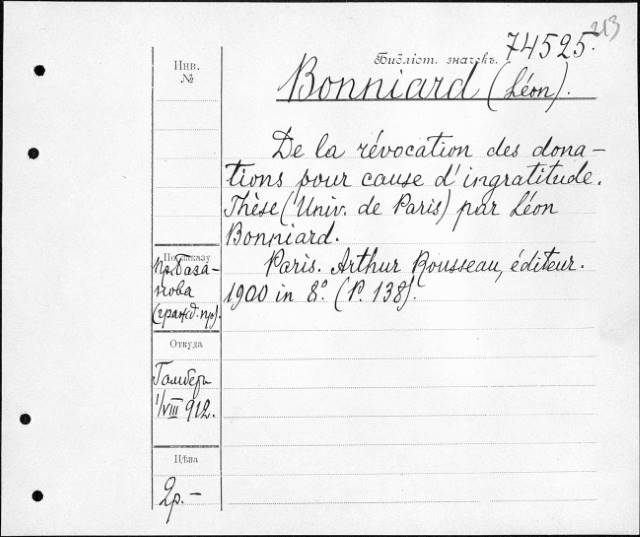 213
Библіот. значекъ. 74525.
Инв.
№
Bonniard (Léon).
De la révocation des dona-
tions pour cause d'ingratitude.
Thèse (Univ. de Paris) par Léon
Bonniard.
Paris. Arthur Rousseau, éditeur.
1900 in 8°. (P. 138).
По заказу
пр. База-
нова
(гражд. пр.).
Откуда
Гамбер
1/VIII 912.
Цѣна
2р.-